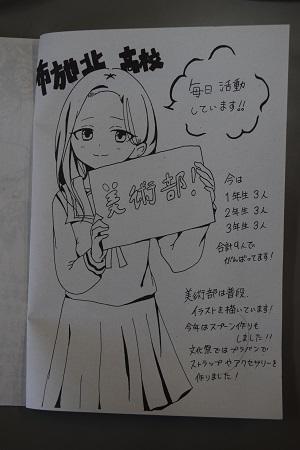 布加北高校
毎日活動
しています!!
美術部!
今は
1年生 3人
2年生 3人
3年生 3人
合計9人で
がんばってます!
美術部は普段、
イラストを描いています!
今年はスプーン作りも
しました!!
文化祭ではプラバンで
ストラップやアクセサリーを
作りました!